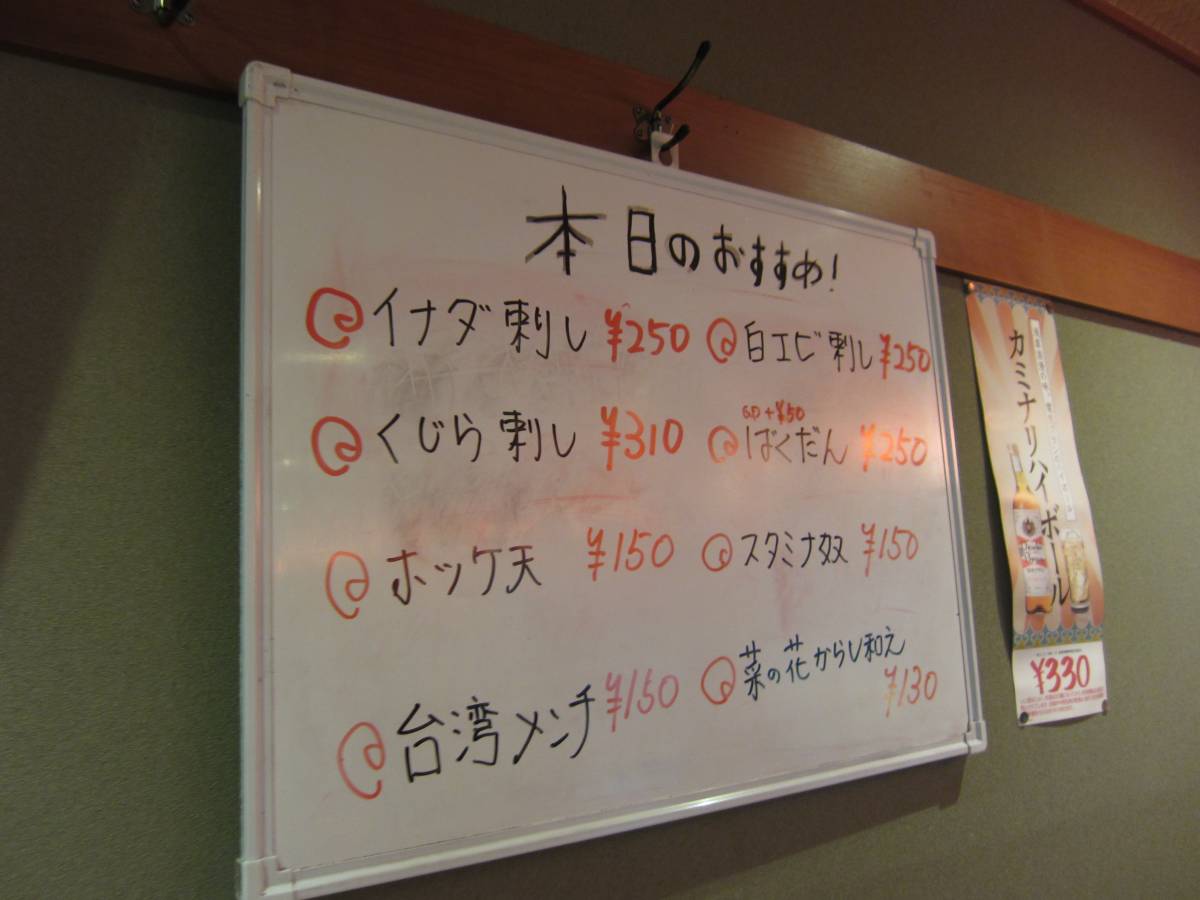 本日のおすすめ!
イナダ刺し ¥250
白エビ刺し ¥250
くじら刺し ¥310
+¥50
ばくだん ¥250
ホッケ天 ¥150
スタミナ奴 ¥150
台湾メンチ ¥150
菜の花からし和え
¥130
カミナリハイボール
¥330